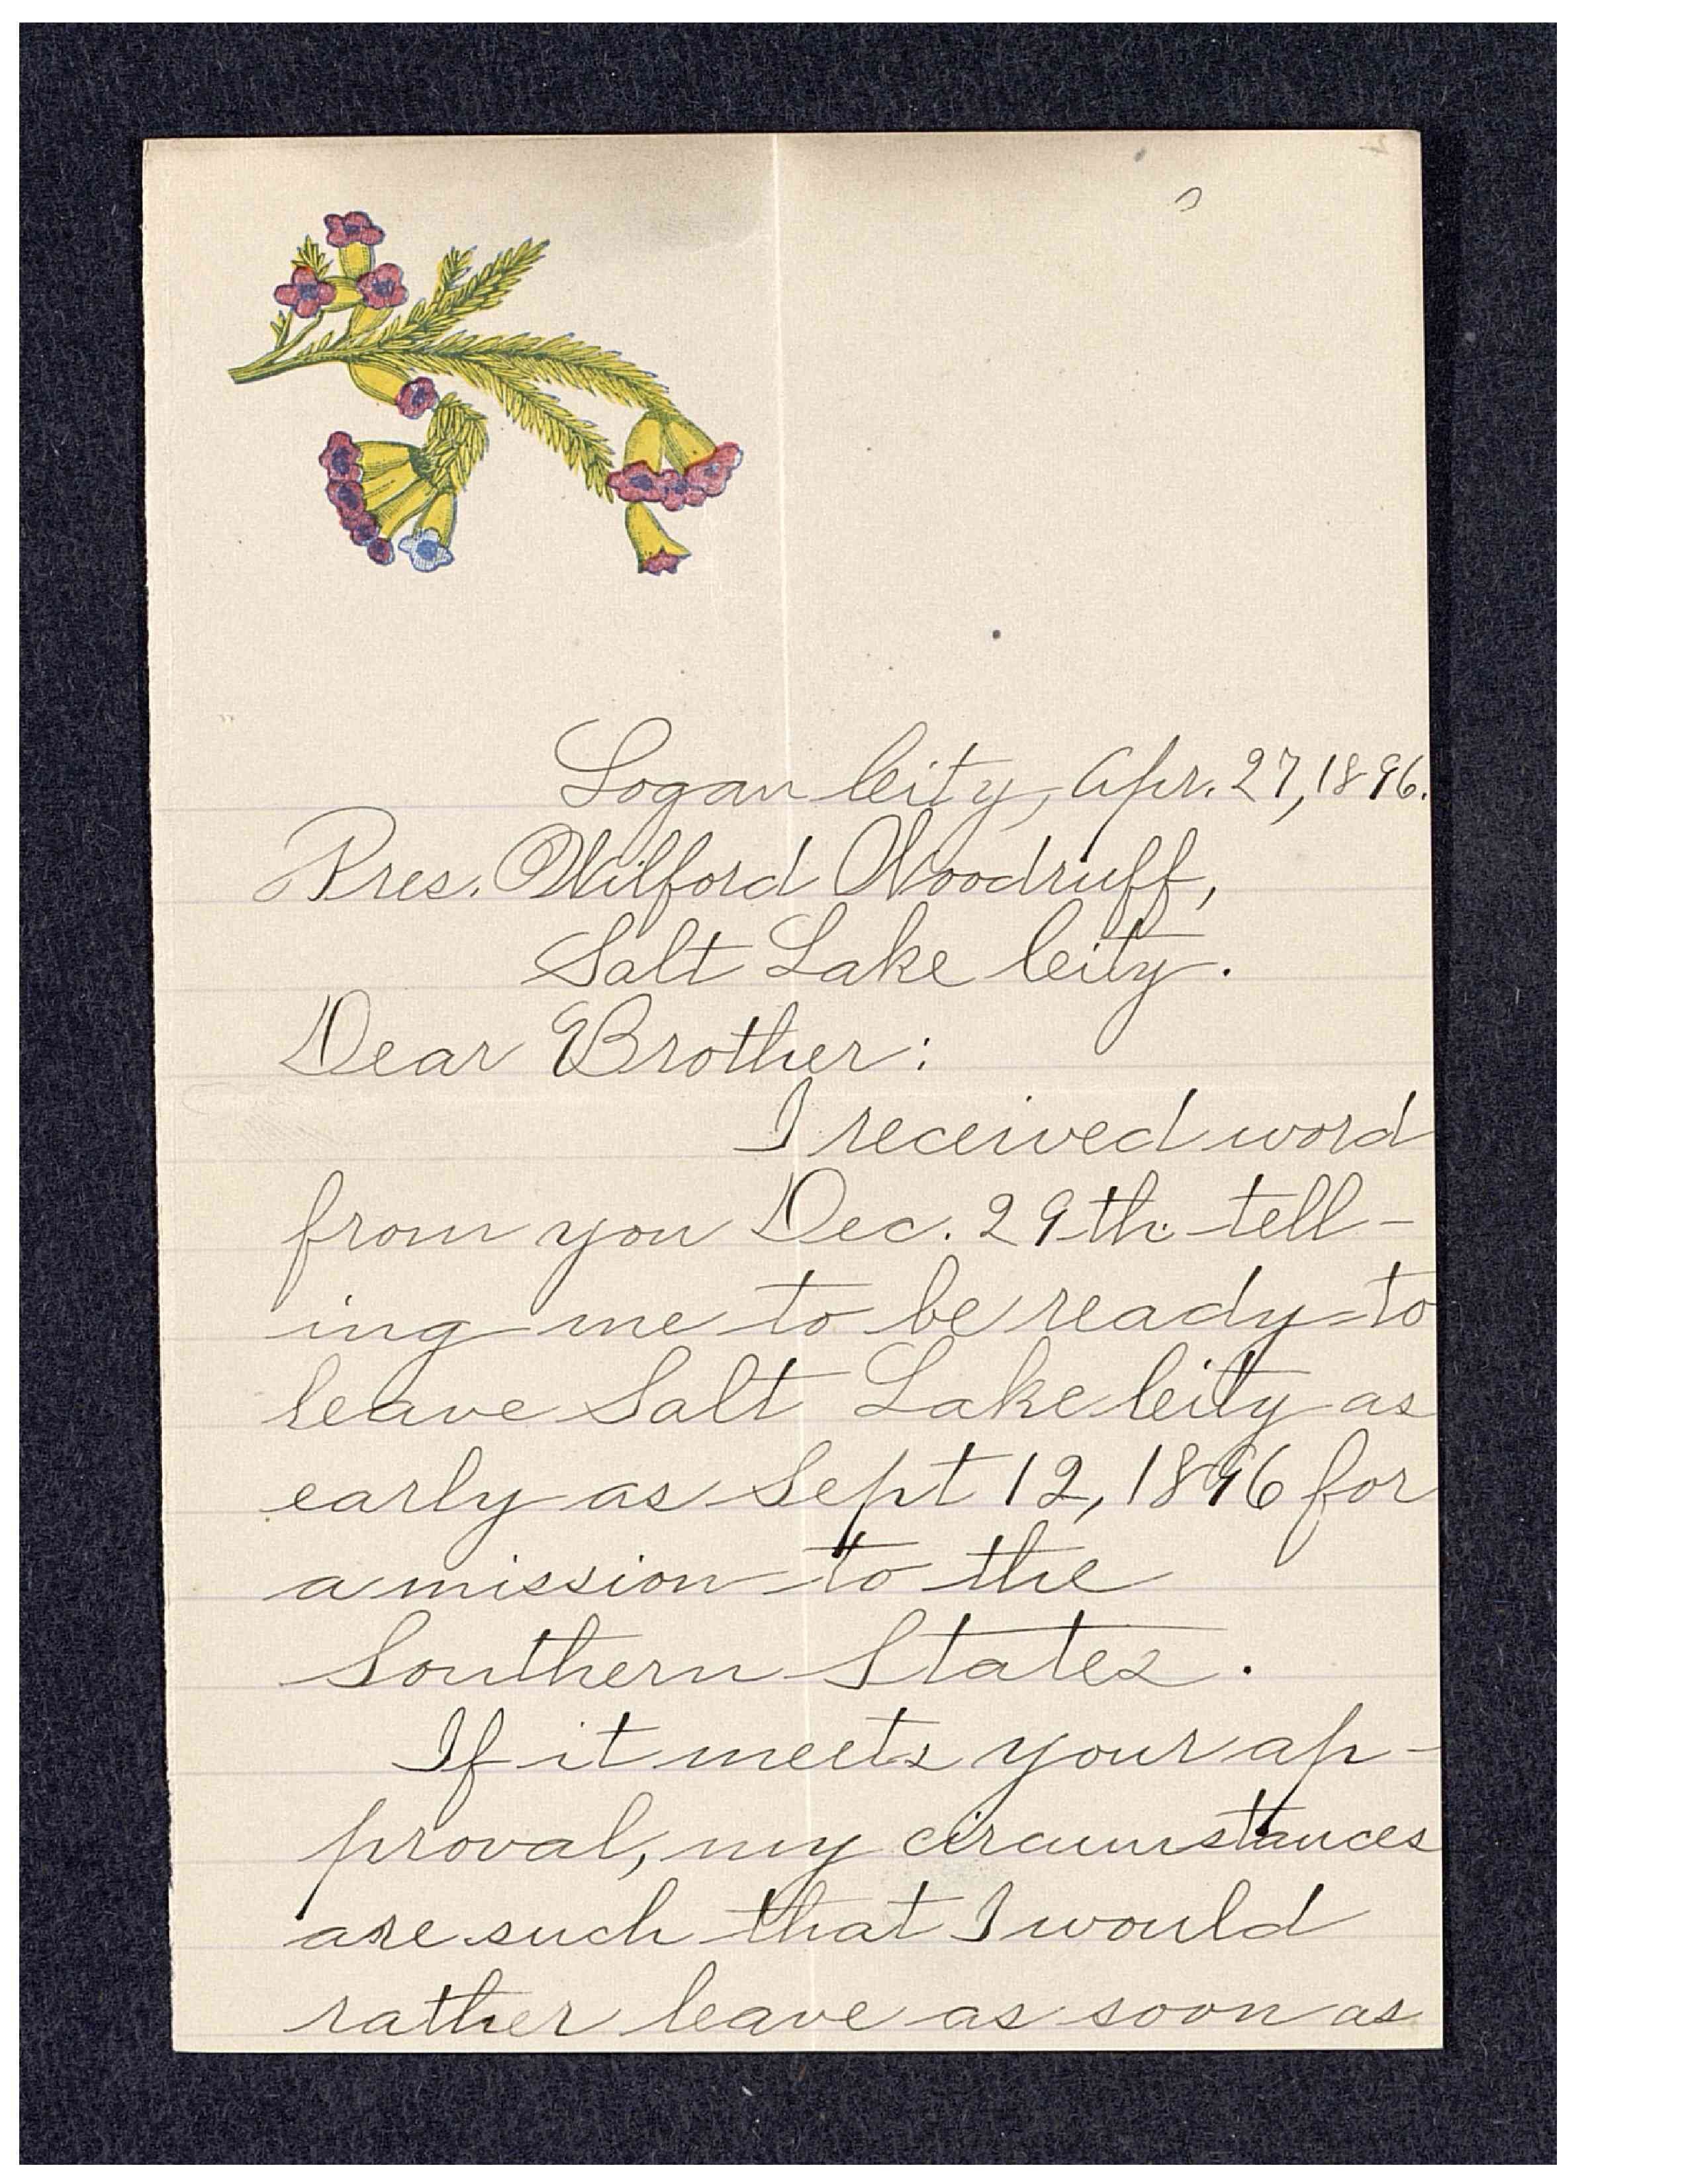 Logan City, Apr. 27, 1896.
Pres. Wilford Woodruff,
Salt Lake City.
Dear Brother:
I received word
from you Dec. 29th tell-
ing me to be ready to
leave Salt Lake City as
early as Sept 12, 1896 for
a mission to the
Southern States.
If it meets your ap-
proval, my circumstances
are such that I would
rather leave as soon as